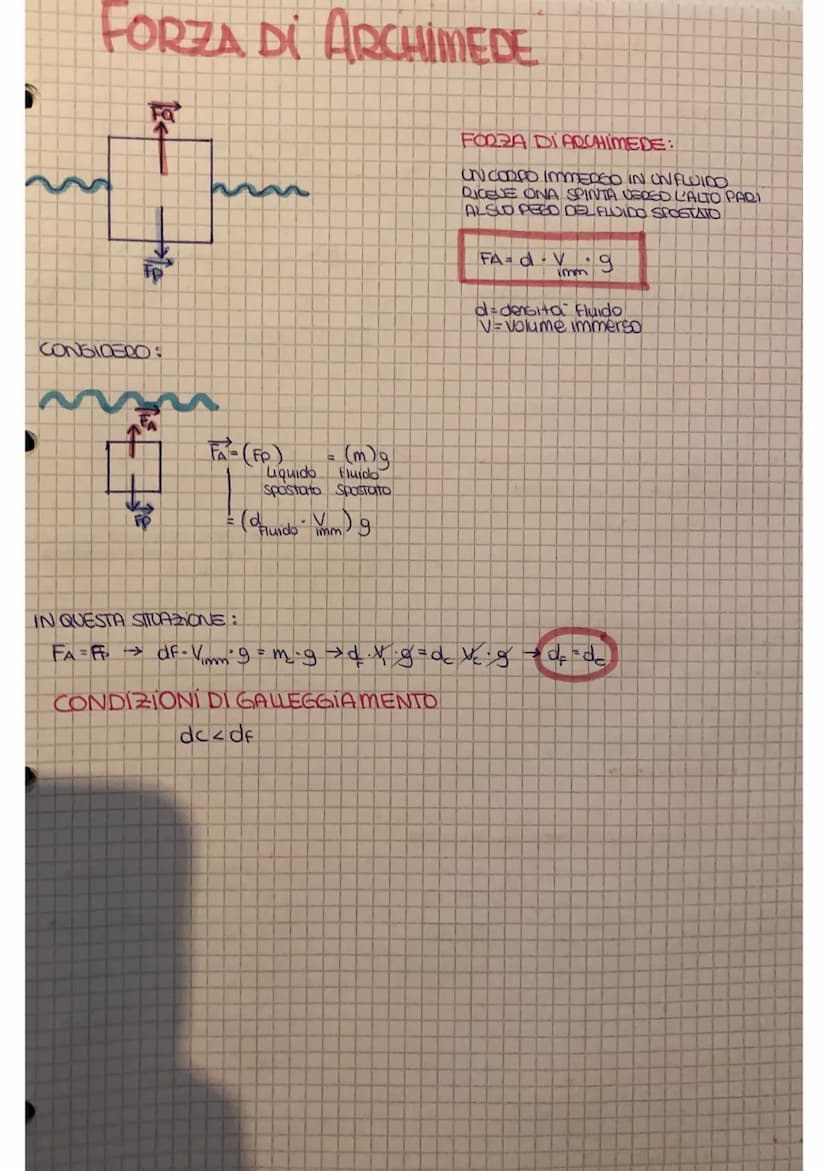 FORZA Di ARCHIMEDE
Fa
Fp
FORZA Di ARCHIMEDE:
UN CORPO IMMERSO IN UN FLUIDO
RICEVE UNA SPINTA VERSO L'ALTO PARI
AL SUO PESO DEL FLUIDO SPOSTATO
FA = d · V imm · g
d = densità fluido
V = volume immerso
CONSIDERO:
FA
FP
FA = (FP) = (m)g
Liquido fluido
spostato spostato
= (d fluido · V imm) g
IN QUESTA SITUAZIONE:
FA = FP → df · Vimm · g = m · g → df · Vf · g = dc Vc · g → dF = dc
CONDIZIONI DI GALLEGGIAMENTO
dc < dF